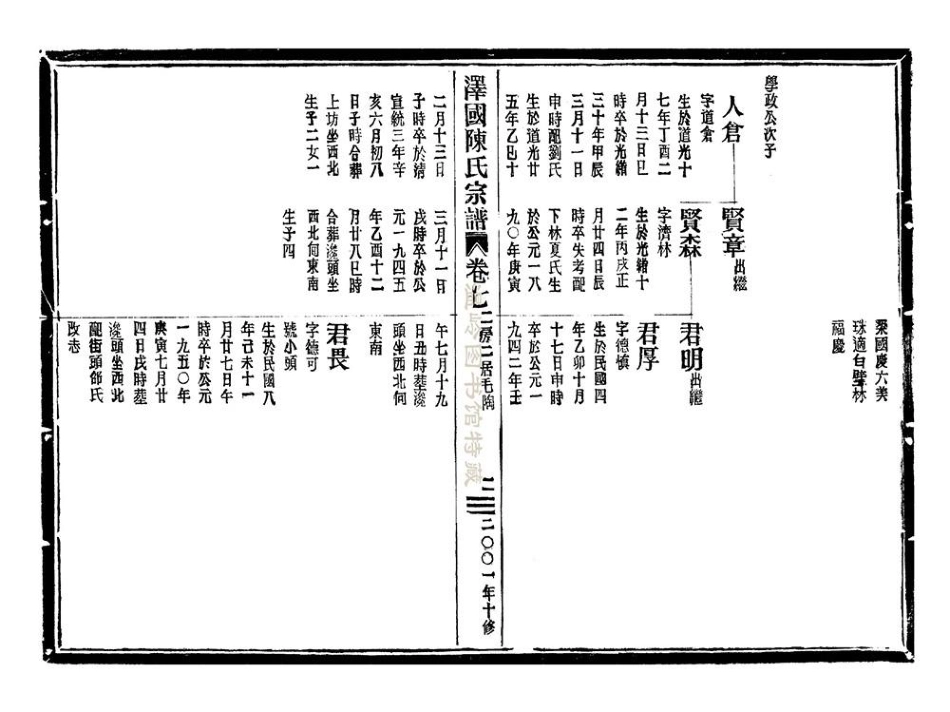 榮國慶六美
珠適白璧林
福慶
學政公次子
人倉
字道倉
生於道光十
七年丁酉二
月十三日巳
時卒於光緒
三十年甲辰
三月十一日
申時配劉氏
生於道光廿
五年乙巳十
二月十三日
子時卒於
宣統三年辛
亥六月初八
日子時合葬
上坊坐西北
生子二女一
賢章出繼
賢森
字濟林
生於光緒十
二年丙戌正
月廿四日辰
時卒失考配
下林夏氏生
於公元一八
九〇年庚寅
三月十一日
戌時卒於公
元一九四五
年乙酉十二
月廿八巳時
合葬後頭坐
西北向東南
生子四
君明出繼
君厚
字德慎
生於民國四
年乙卯十月
十七日申時
卒於公元一
九四二年壬
午七月十九
日丑時葬後
頭坐西北向
東南
君畏
字德可
號小頭
生於民國八
年己未十一
月廿七日午
時卒於公元
一九五〇年
庚寅七月廿
四日戌時葬
後頭坐西北
配街頭邰氏
改志
澤國陳氏宗譜
卷七二房二居毛陶
二〇〇一年十修
温岭图书馆特藏